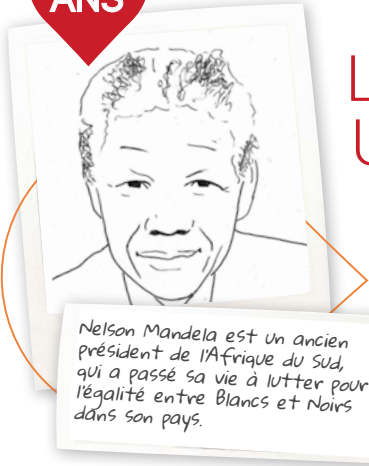 ANS
L
U
Nelson Mandela est un ancien
président de l'Afrique du Sud,
qui a passé sa vie à lutter pour
l'égalité entre Blancs et Noirs
dans son pays.